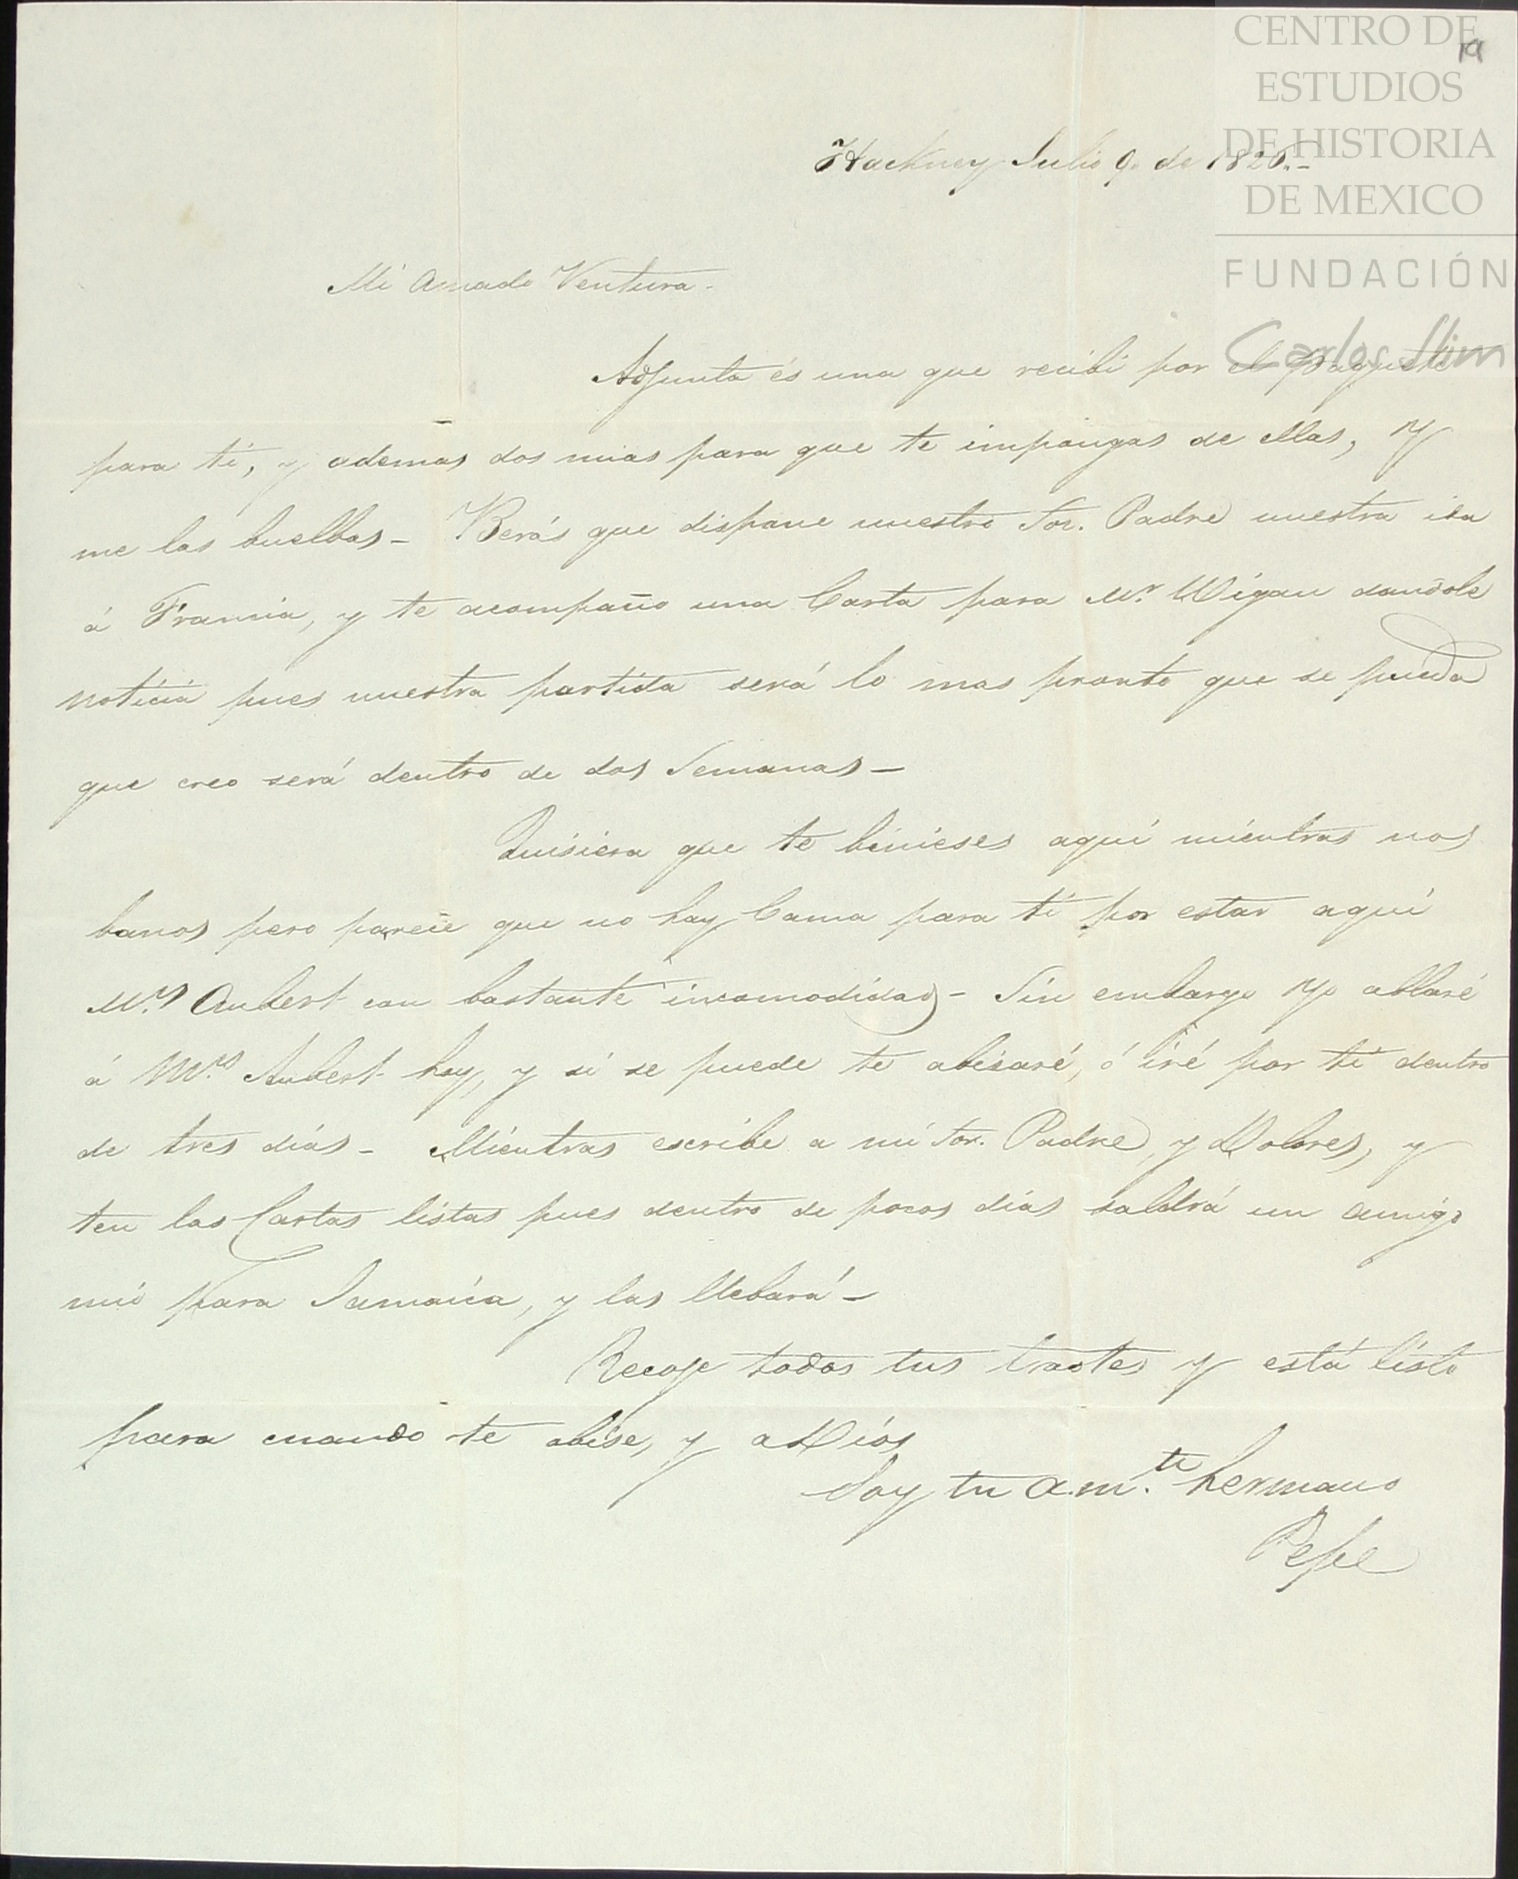 CENTRO DE
ESTUDIOS
DE HISTORIA
DE MEXICO
FUNDACIÓN
Carlos Slim
19
Hackney Julio 9. de 1826.-
Mi Amado Ventura-
Adjunta és una que recibi por el Paquete
para ti, y ademas dos mias para que te impongas de ellas, y
me las buelbas- Berás que dispone nuestro Sor. Padre nuestra ida
á Francia, y te acompaño una Carta para Mr. Wigan dandole
noticia pues nuestra partida será lo mas pronto que se pueda
que creo será dentro de dos Semanas-
Quisiera que te binieses aqui mientras nos
bamos pero parece que no hay Cama para ti por estar aqui
Mrs Aubert con bastante incomodidad- Sin embargo yo ablaré
á Mrs Aubert hoy, y si se puede te abisaré, ó iré por ti dentro
de tres dias- Mientras escribe a mi Sor. Padre, y Dolores, y
ten las Cartas listas pues dentro de pocos dias saldrá un amigo
mio para Jamaica, y las llebará-
Recoje todos tus trastes y está listo
para cuando te abise, y aDios
Soy tu am.te hermano
Pepe